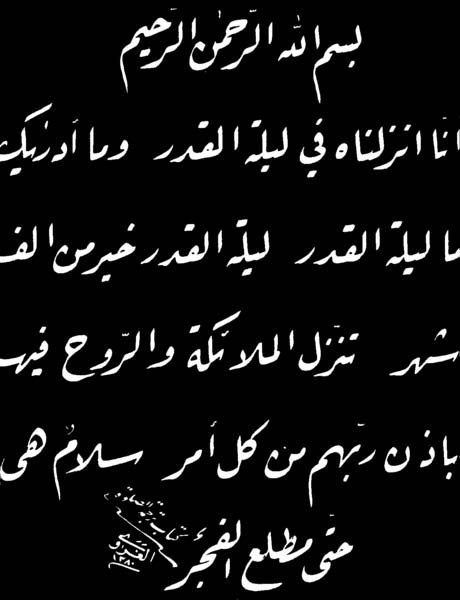 بسم الله الرّحمٰن الرّحيم
انّا انزلناه في ليلة القدر وما أدرٰيك
ما ليلة القدر ليلة القدر خير من الف
شهر تنزّل الملائكة والرّوح فيها
باذن ربّهم من كل أمر سلامٌ هى
حتّى مطلع الفجر